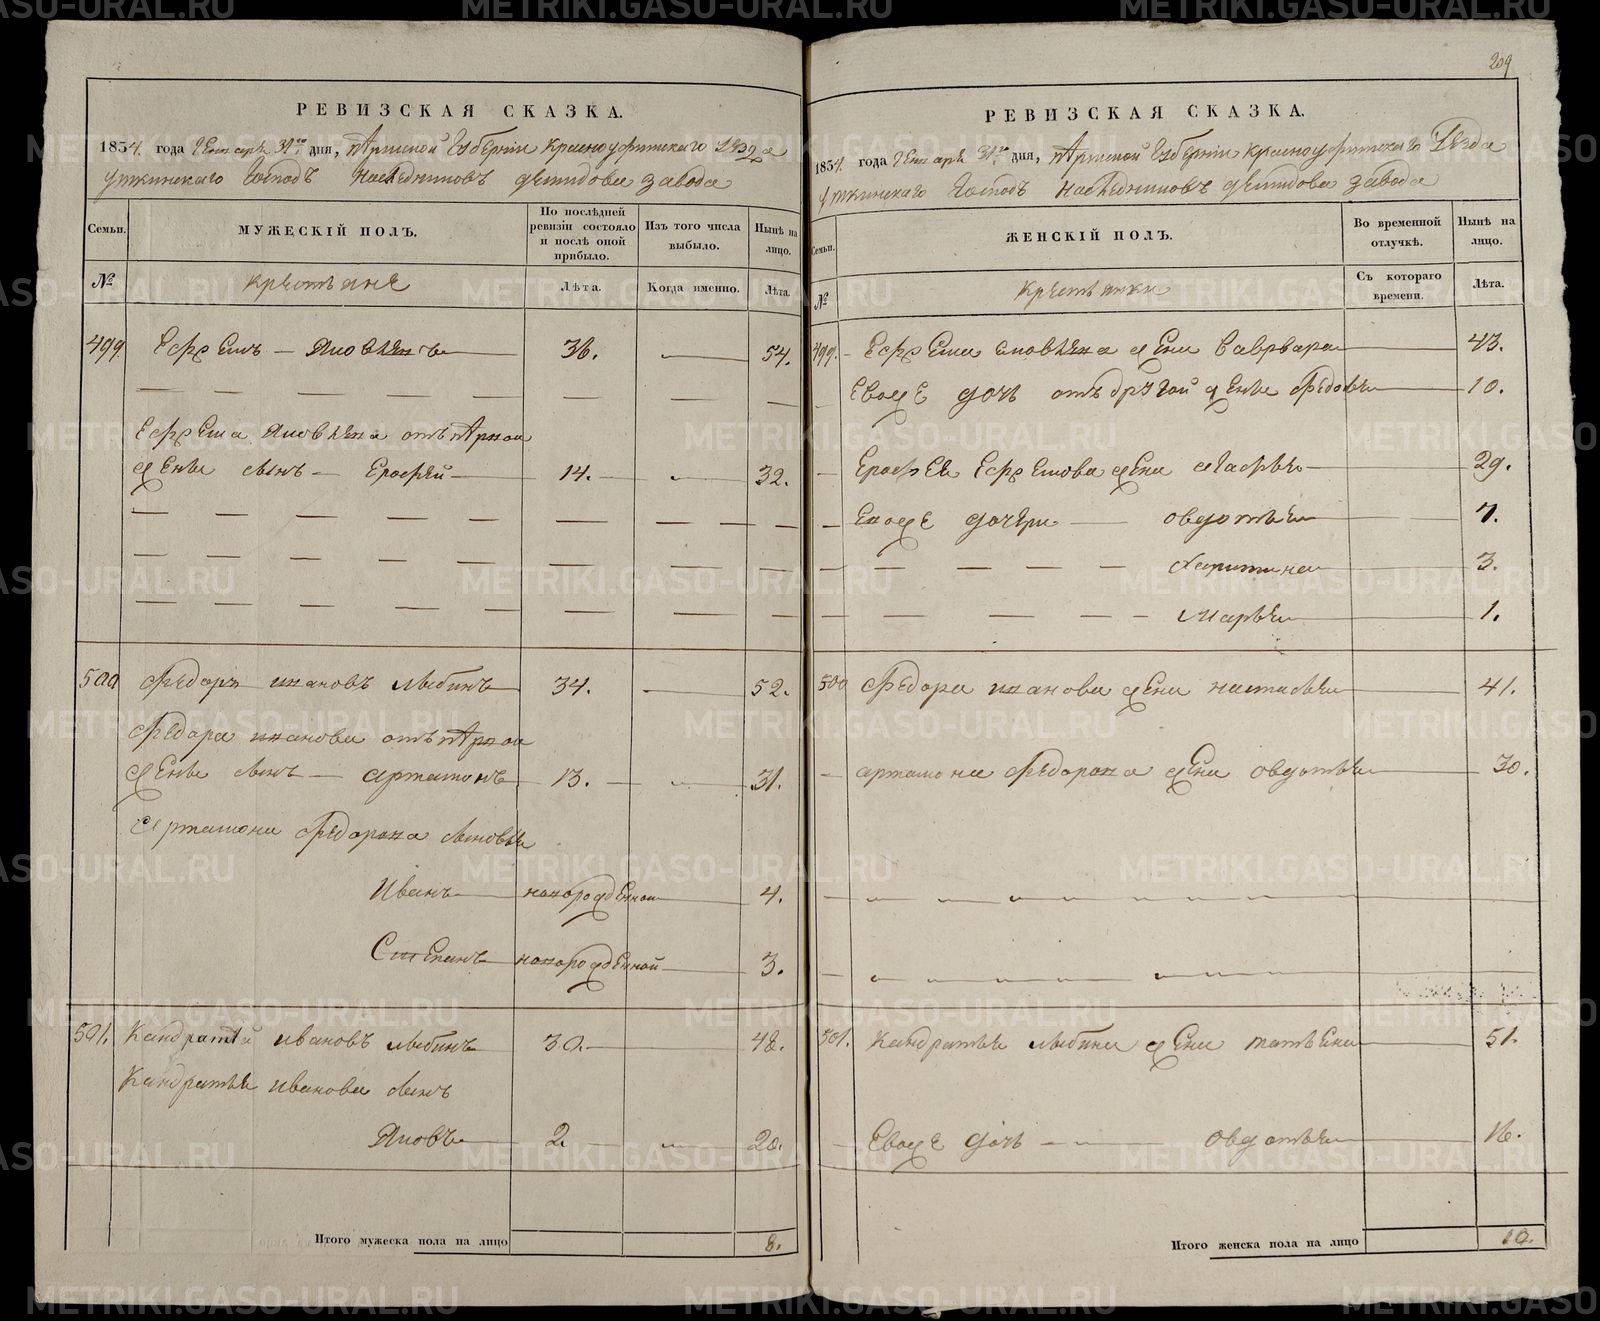 209
РЕВИЗСКАЯ СКАЗКА.
1834. года Генваря 31го дня, Пермской Губернии Красноуфимскаго Уезда
Уткинскаго Господъ Наследниковъ Демидова завода
Семьи.
МУЖЕСКІЙ ПОЛЪ.
По послѣдней ревизіи состояло и послѣ оной прибыло.
Изъ того числа выбыло.
Нынѣ на лицо.
№
крестьяне
Лѣта.
Когда именно.
Лѣта.
499 Ефремъ — Яковлевъ 36. 54.
Ефрема Яковлева отъ первой
жены сынъ — Ерофей 14. 32.
500 Федоръ Ивановъ Лыбинъ 34. 52.
Федора Иванова отъ первой
жены сынъ — Артамонъ 13. 31.
Артамона Федорова сыновья
Иванъ новорожденной 4.
Степанъ новорожденной 3.
501. Кандратей Ивановъ Лыбинъ 30. 48.
Кандратья Иванова сынъ
Яковъ 2. 20.
Итого мужеска пола на лицо 8.
РЕВИЗСКАЯ СКАЗКА.
1834. года Генваря 31го дня, Пермской Губернии Красноуфимскаго Уезда
Уткинскаго Господъ Наследниковъ Демидова завода
Семьи.
ЖЕНСКІЙ ПОЛЪ.
Во временной отлучкѣ.
Нынѣ на лицо.
№
крестьянки
Съ котораго времени.
Лѣта.
499. Ефрема Яковлева жена Варвара 43.
Евоже дочь отъ другой жены Федосья 10.
Ерофея Ефремова жена 29.
Евоже дочери — Овдотья 7.
Харитина 3.
Марья 1.
500 Федора Иванова жена Настасья 41.
Артамона Федорова жена Овдотья 30.
501. Кандратья Лыбина жена Татьяна 51.
Евоже дочь — Овдотья 16.
Итого женска пола на лицо 10.
METRIKI.GASO-URAL.RU